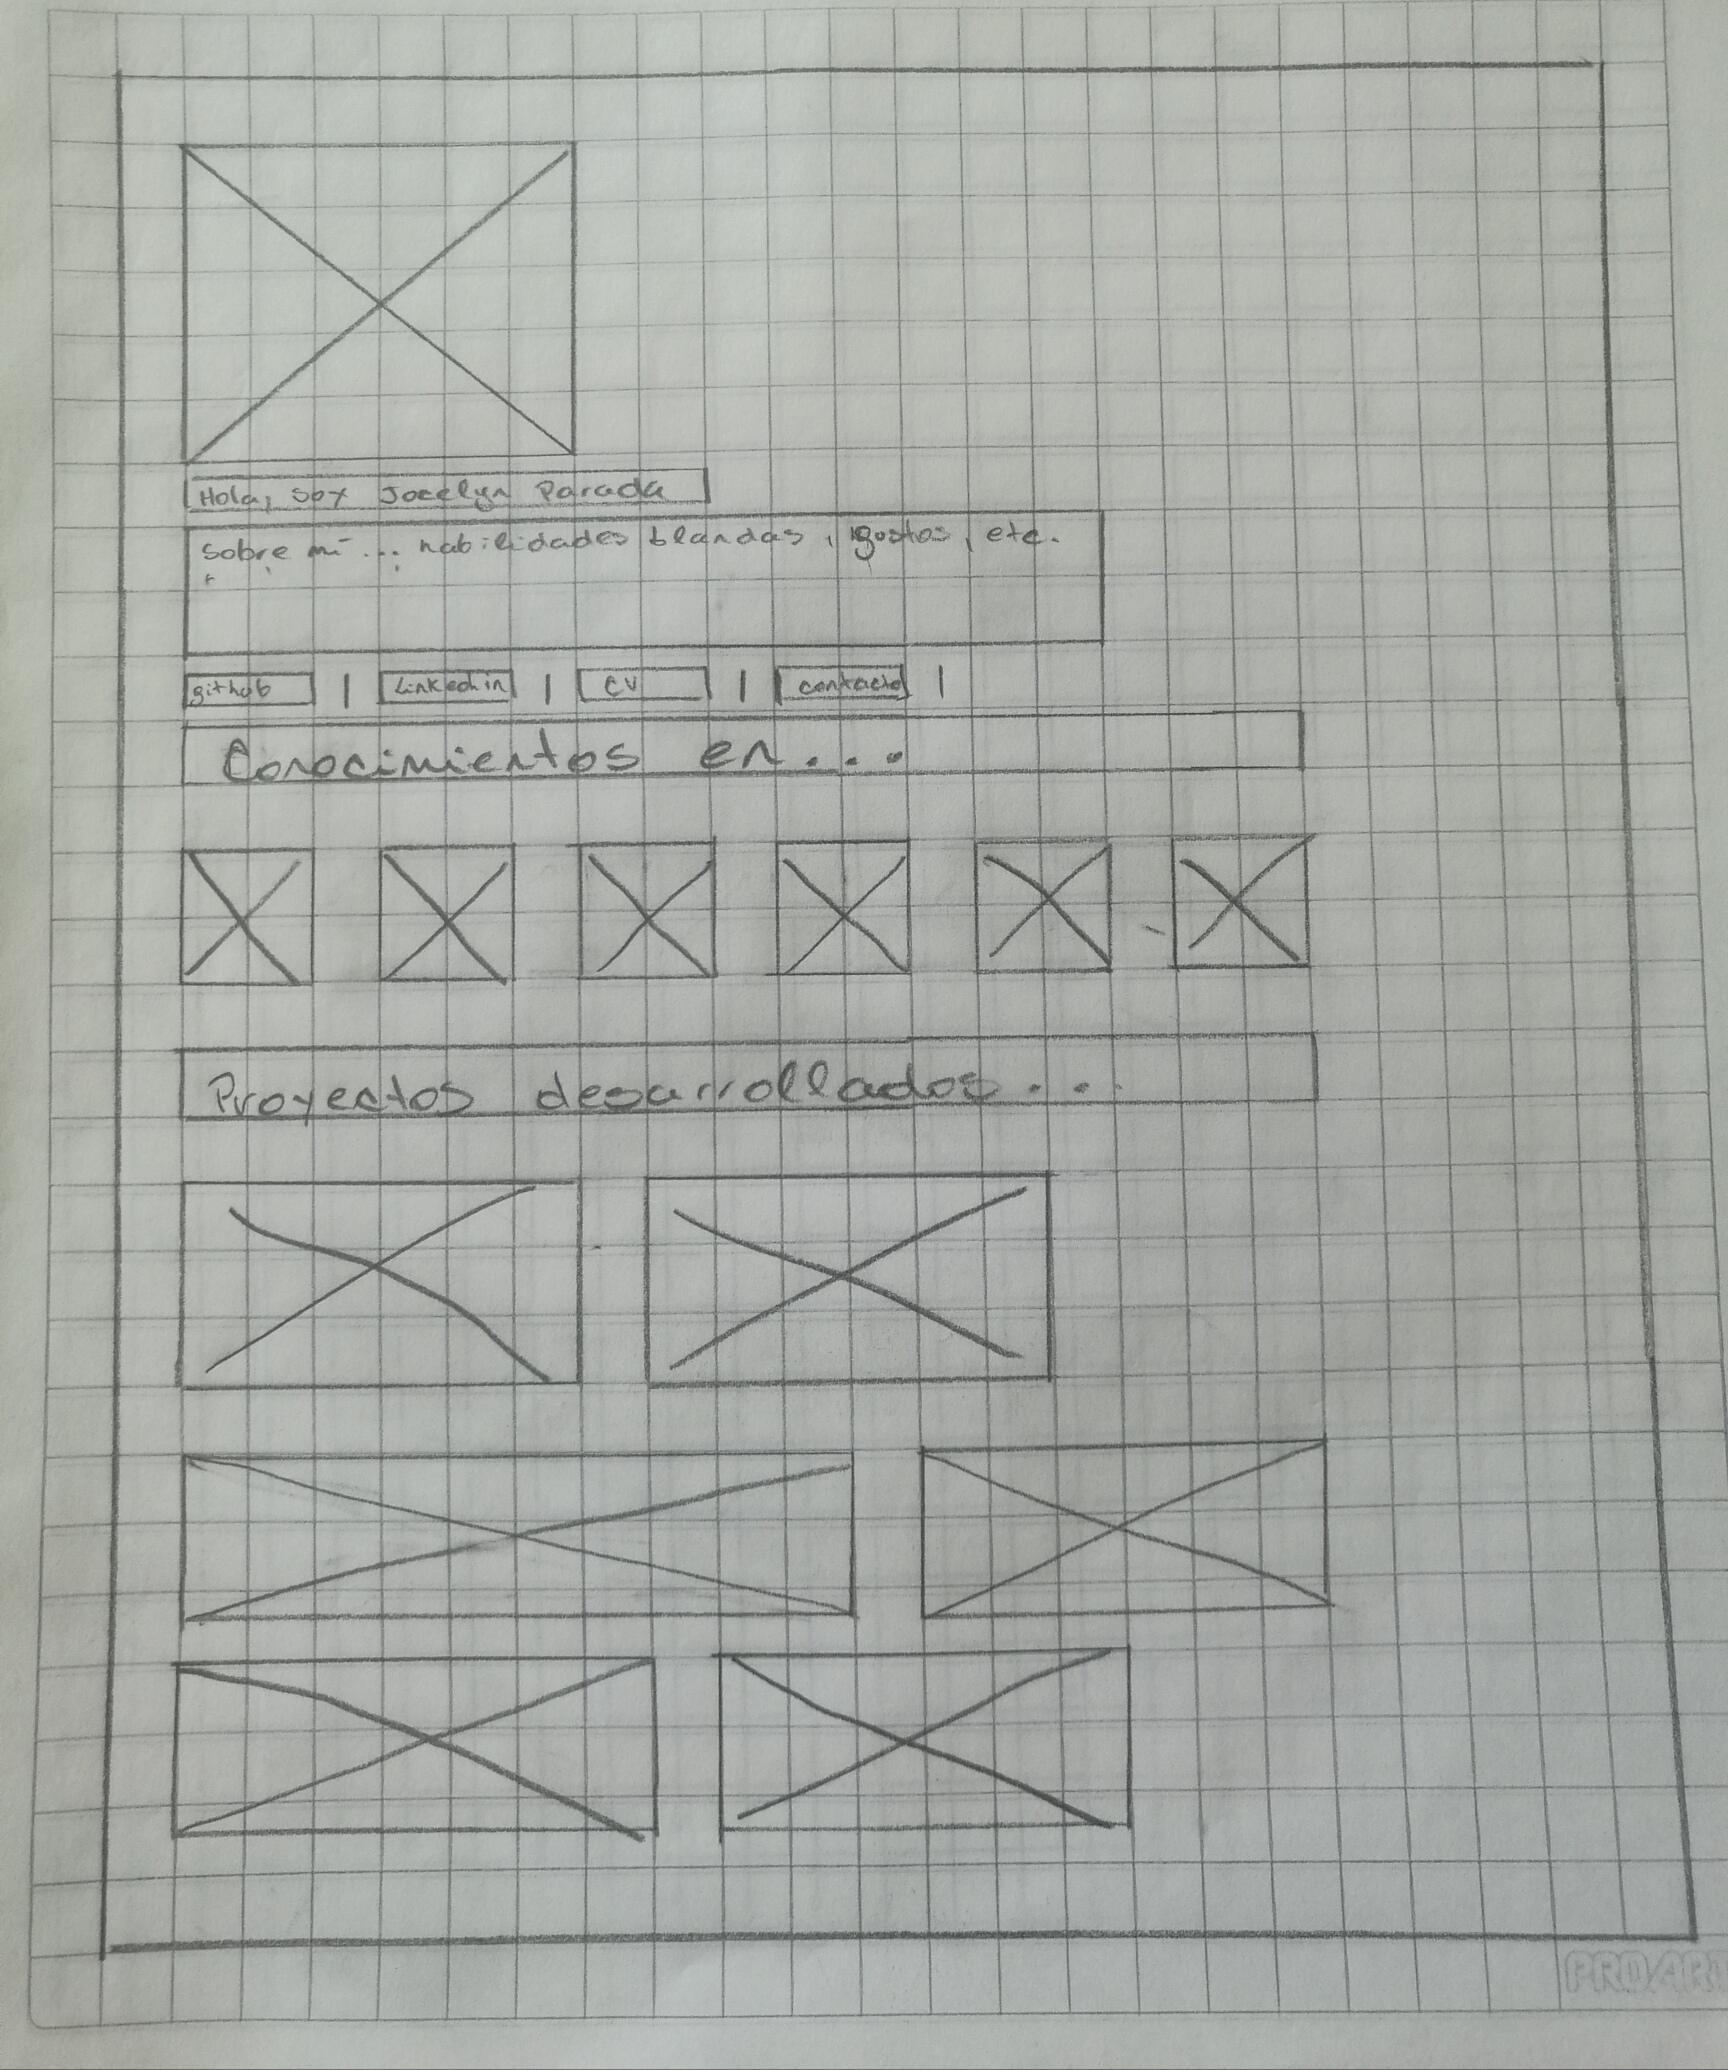 Hola, soy Jocelyn Parada
Sobre mí... habilidades blandas, gustos, etc.
github | Linkedin | CV | contacto |
Conocimientos en...
Proyectos desarrollados...
PROART